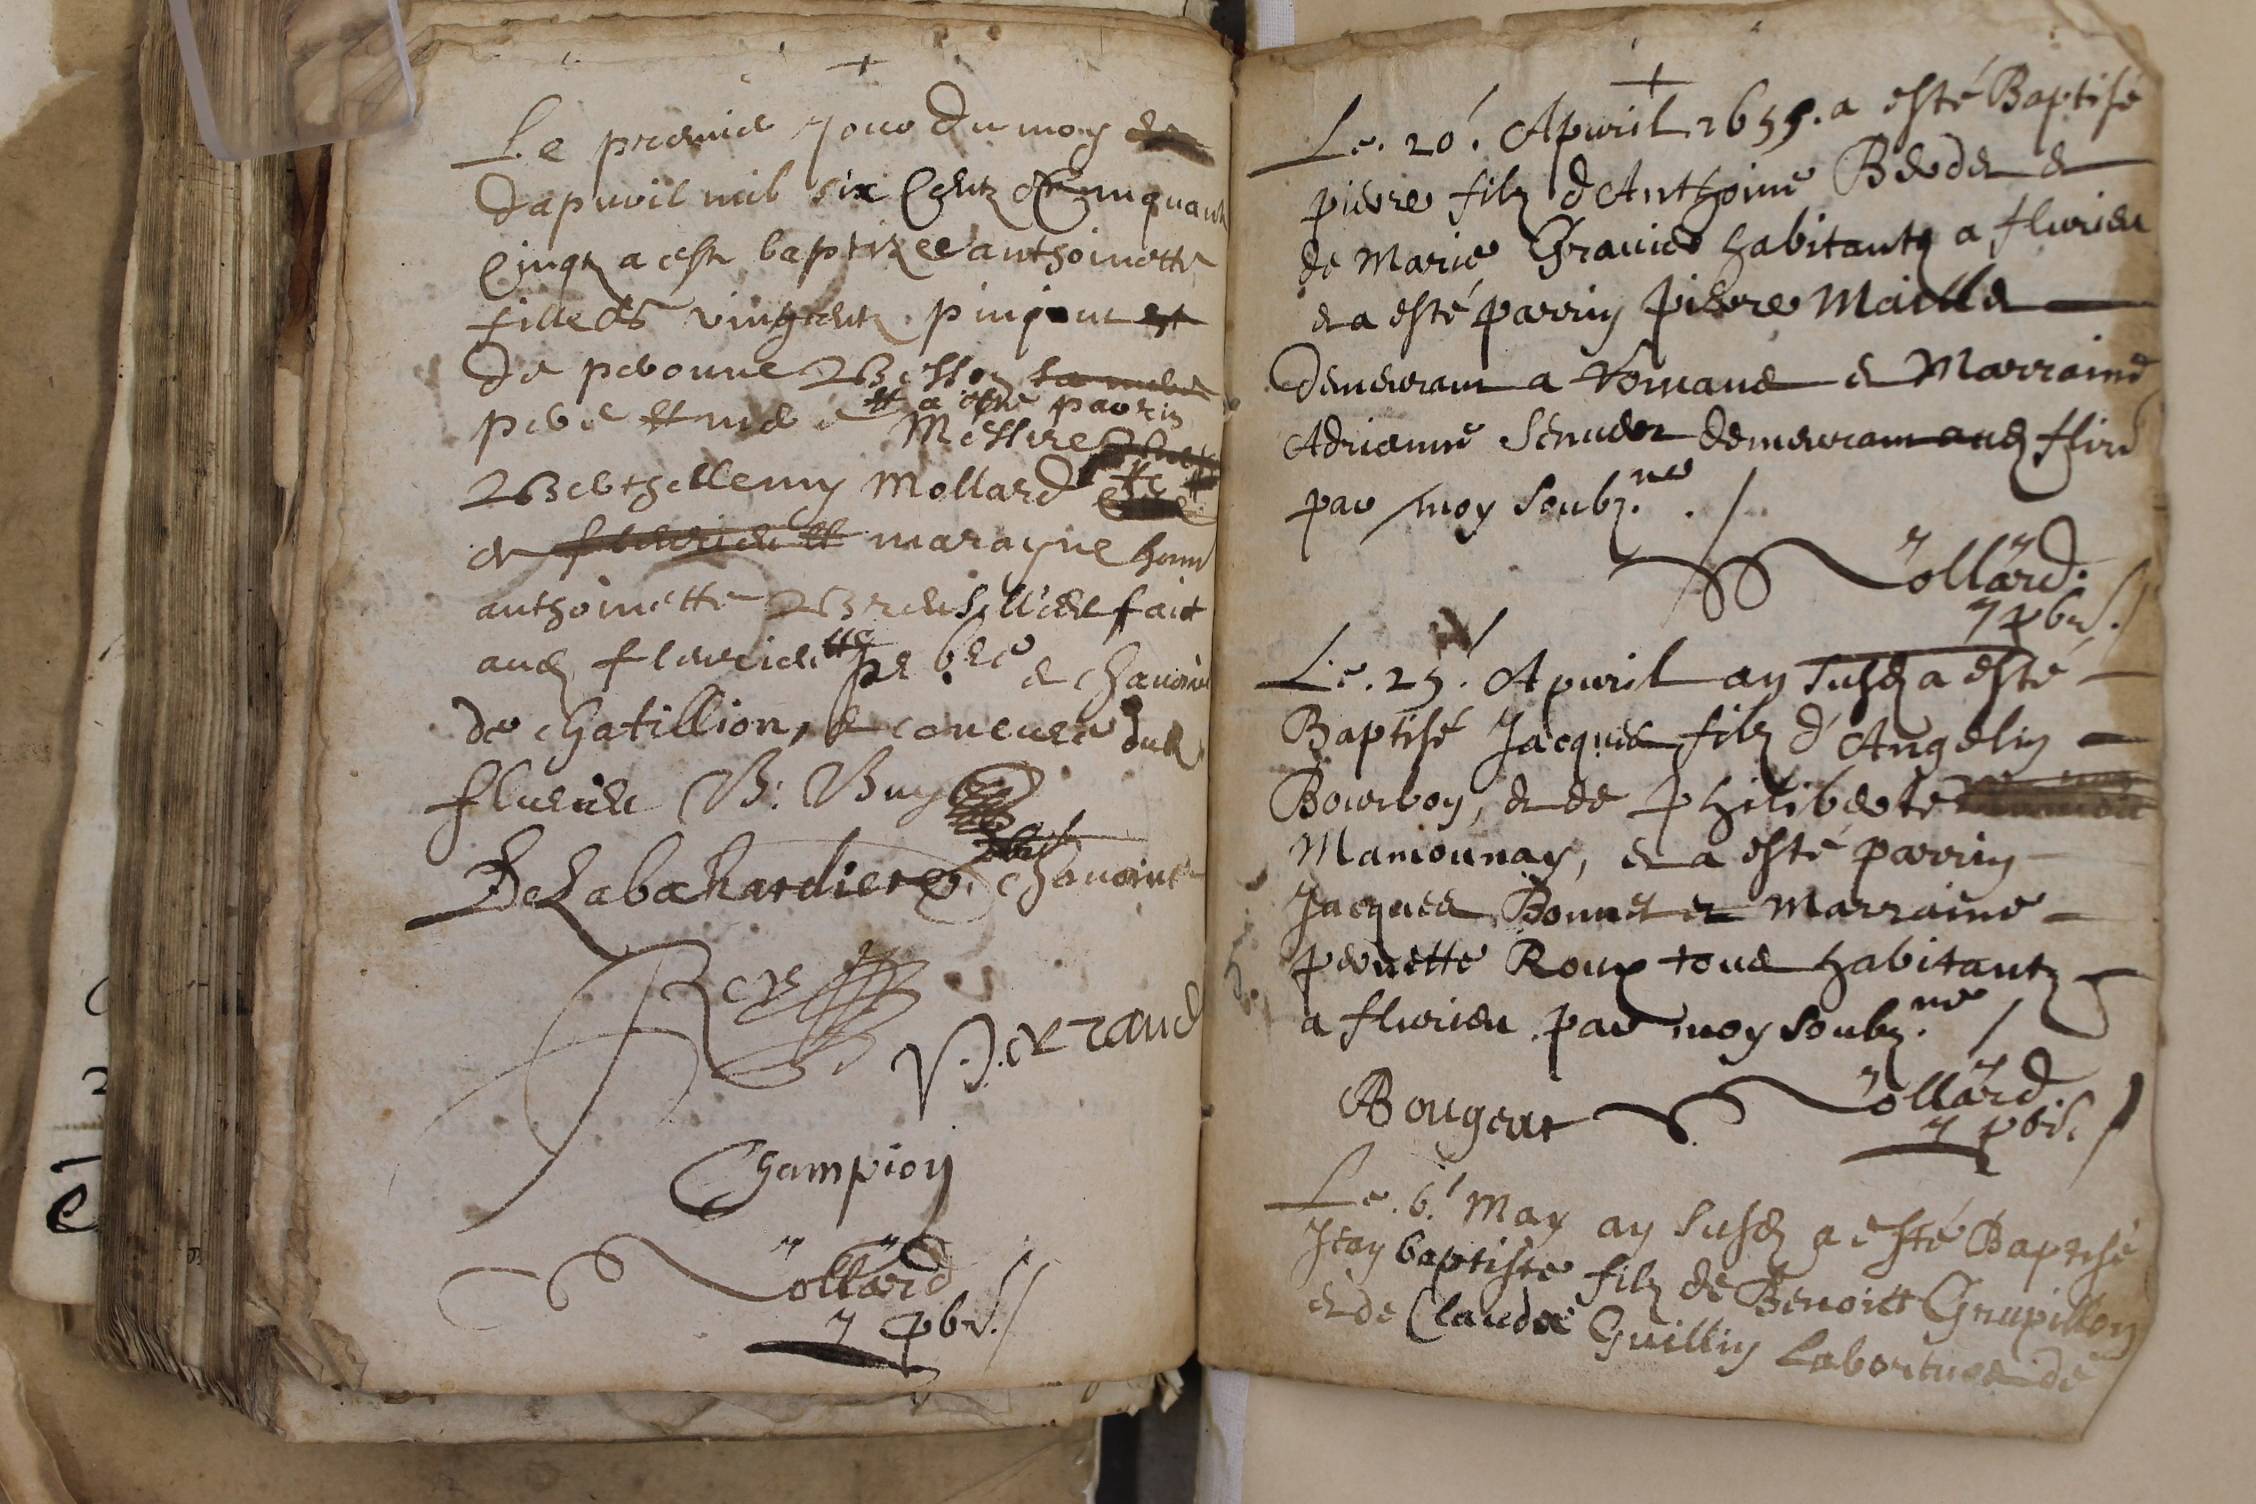 Le premier Jour du moy de
dapvril mil six Centz Cinquante
Cinqz a este baptizee anthoinette
fille de vingtentz pinjout et
de pebonne Besson sa mere
pere et mere et a este parrin
Messire
Berthellemy Mollard
et fleurieu et marayne honn
anthoinette fait
aud fleurieu et chanoine
de chatillion, et cure dud
flurieu B. Buy
DeLabachardiere, chanoine
Rey
Perraud
Champion
Mollard
pbr.
Le .20. Apvril 1655. a esté Baptisé
pierre filz d'Anthoine Berder et
de Marie Gravier habitantz a flurieu
et a esté parrin pierre Maille
demeurant a Romans et Marraine
Adrienne demeurant aud fluri
par moy soubz.né . /
Mollard.
pbr. /
Le .25. Apvril an susd a esté
Baptisé Jacques filz d'Angelin
Bourbon, et de philiberte
Mamounay, et a esté parrin
Jacques Bonnet et Marraine
pernette Roux tous habitantz
a flurieu par moy soubz.né /
Bougeat
Mollard
pbr. /
Le .6. May an susd a esté Baptisé
Jean baptiste filz de Benoitt Grupillon
et de Claudee Guillin Laboureur de